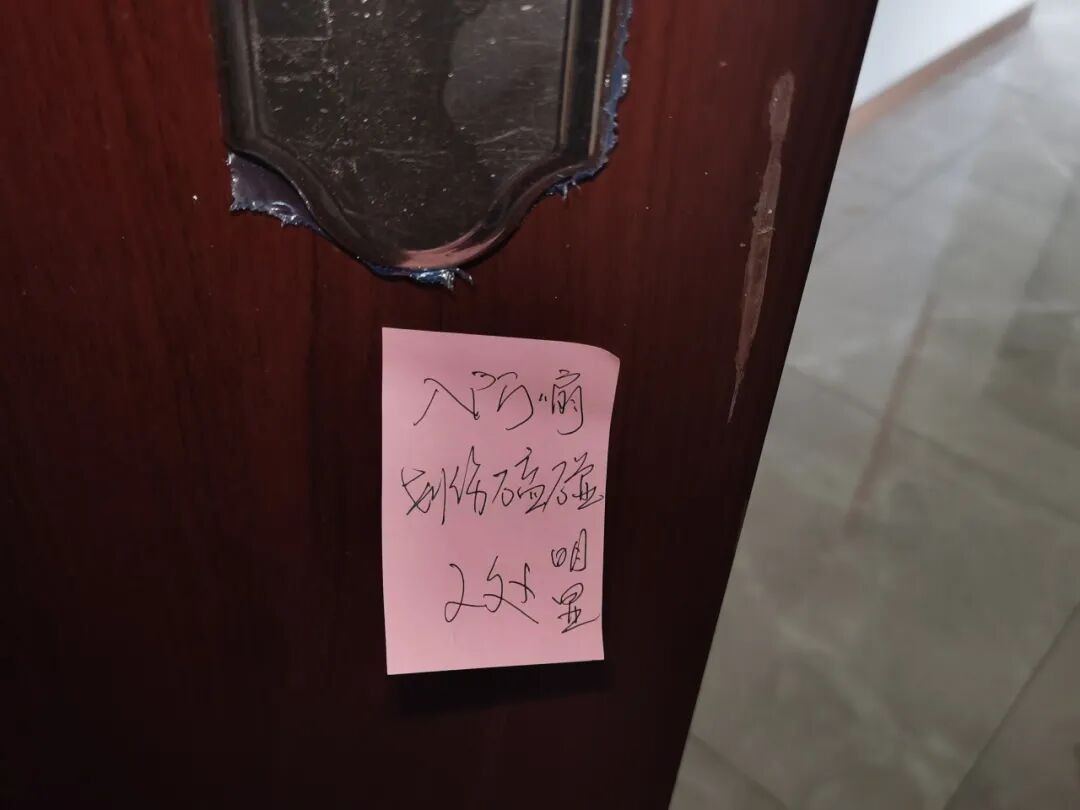 入门扇
划伤磕碰
2处明显